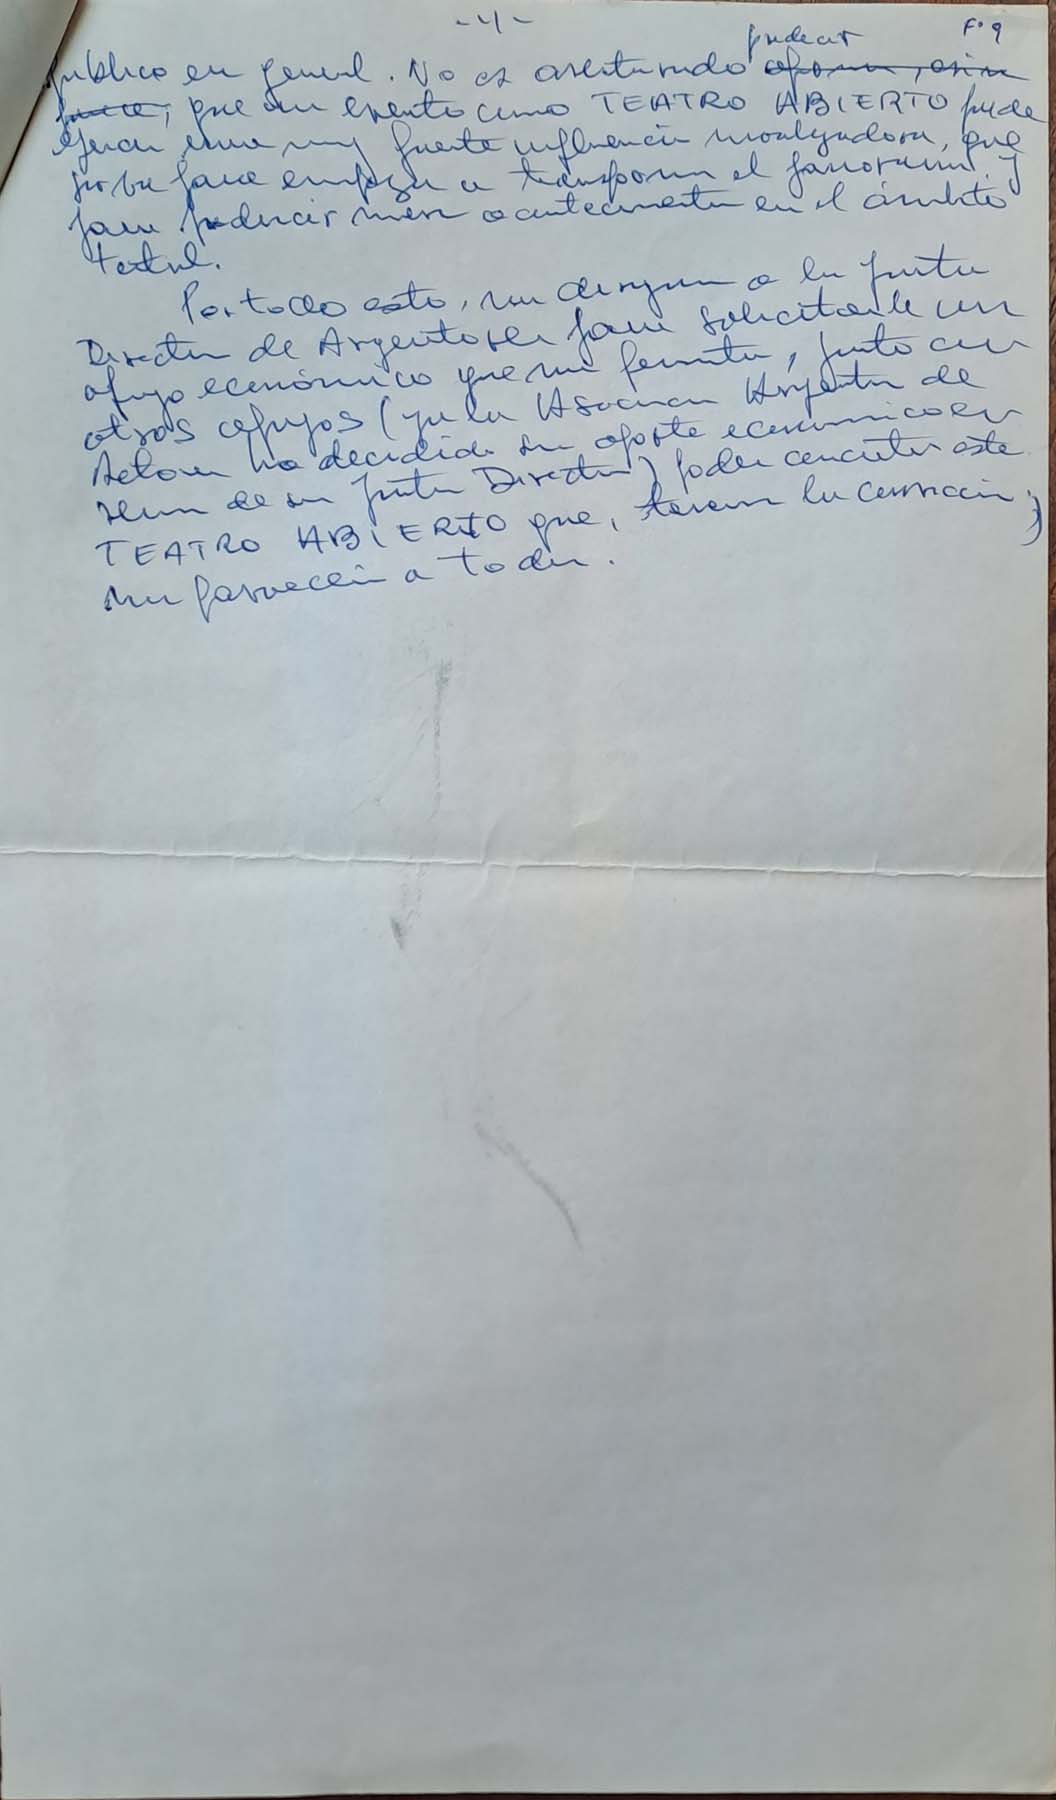 -4-
Fº 9
publico en general. No es aventurado predecir
que un evento como TEATRO ABIERTO puede
ejercer una muy fuerte influencia movilizadora, que
sirva para empezar a transformar el panorama y
para producir nuevos acontecimientos en el ámbito
teatral.
Por todo esto, nos dirigimos a la Junta
Directiva de Argentores para solicitarle un
apoyo económico que nos permita, junto con
otros apoyos (ya la Asociación Argentina de
Actores ha decidido su aporte económico en
reunión de su Junta Directiva) poder concretar este
TEATRO ABIERTO que, tenemos la convicción,
nos favorecerá a todos.